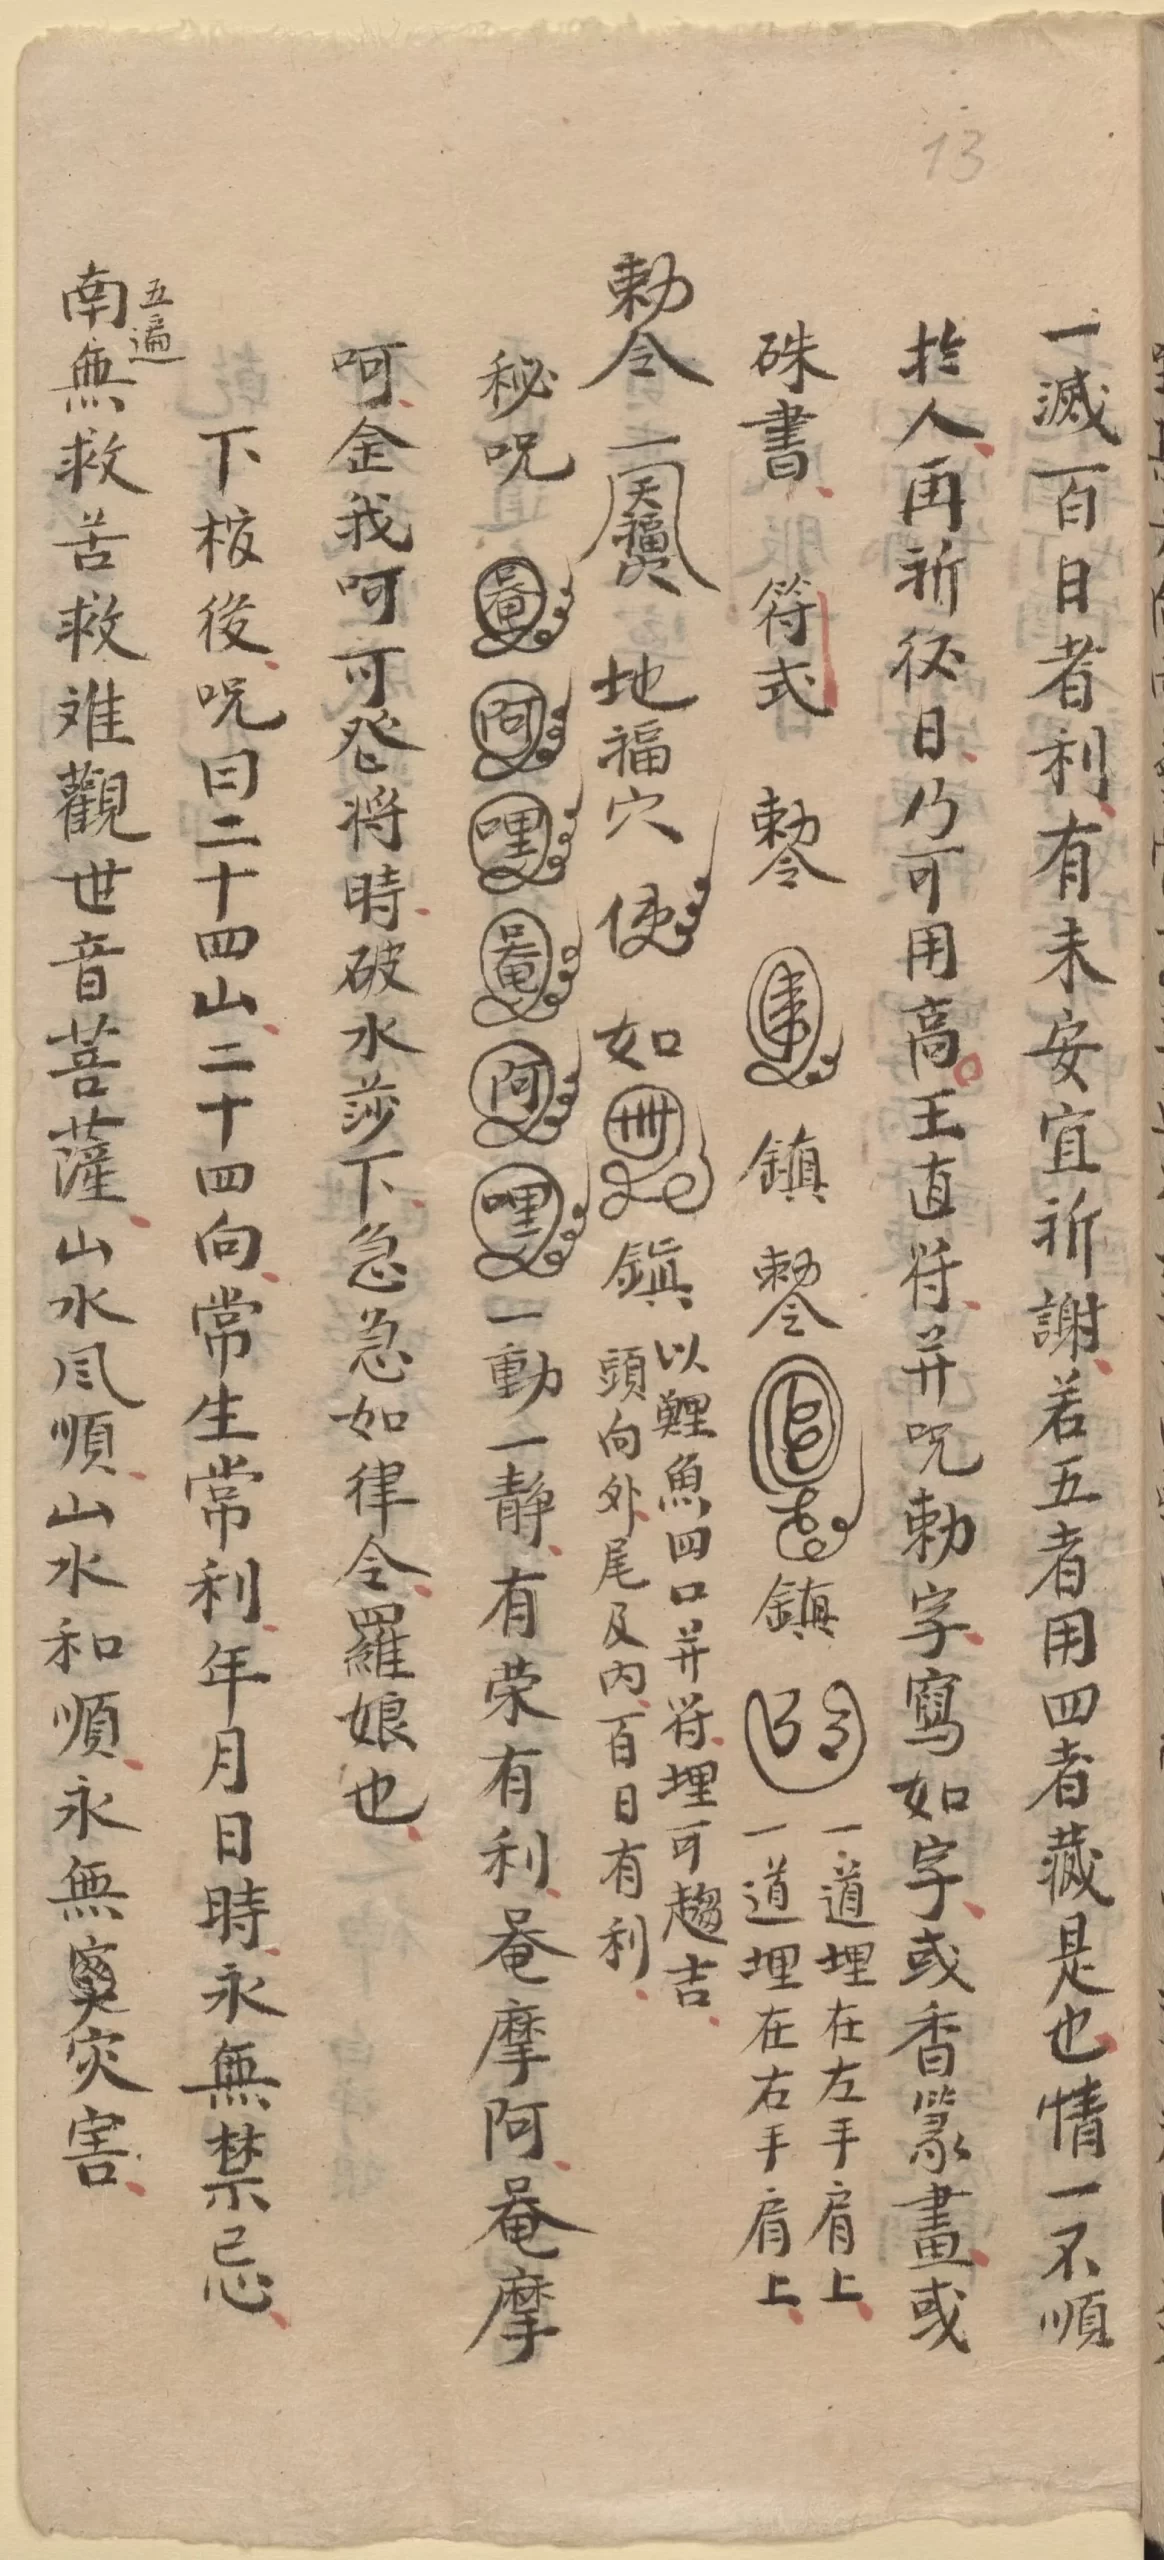 13
一滅百日者利有未安宜祈謝若五者用四者藏是也情一不順
扵人再祈征日乃可用高王直符并呪勅字寫如字或香篆畫或
硃書 符式 勅令 鎮 勅令 鎮
一道埋在左手肩上
一道埋在右手肩上
勅令 一 天福穴 地福穴 使 如 鎮
以鯉魚四口并符埋可趨吉
頭向外尾及内百日有利
秘呪 唵 阿 哩 唵 阿 哩 一動一静有荣有利唵摩阿唵摩
呵金我呵可癹将時破水莎下急急如律令羅娘也
下棺後呪曰二十四山二十四向常生常利年月日時永無禁忌
五遍
南無救苦救难觀世音菩薩山水风順山水和順永無灾害